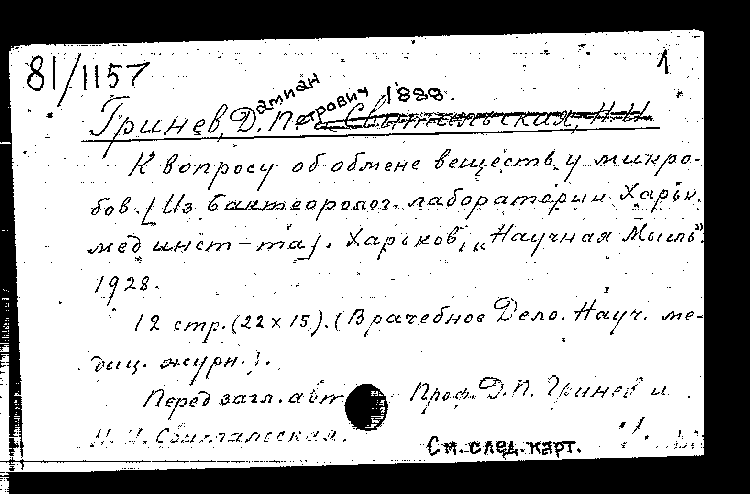 81/1157 1
Гринев, Дамиан Петрович 1888.
и Свитальская, Н.И.
К вопросу об обмене веществ у микро-
бов. [Из Бактеоролог. лаборатории Харьк.
мед инст-та]. Харьков, „Научная Мысль".
1928.
12 стр. (22 x 15). (Врачебное Дело. Науч. ме-
диц. журн.).
Перед загл. авт Проф. Д.П. Гринев и
Н. И. Свитальская.
См. след. карт.